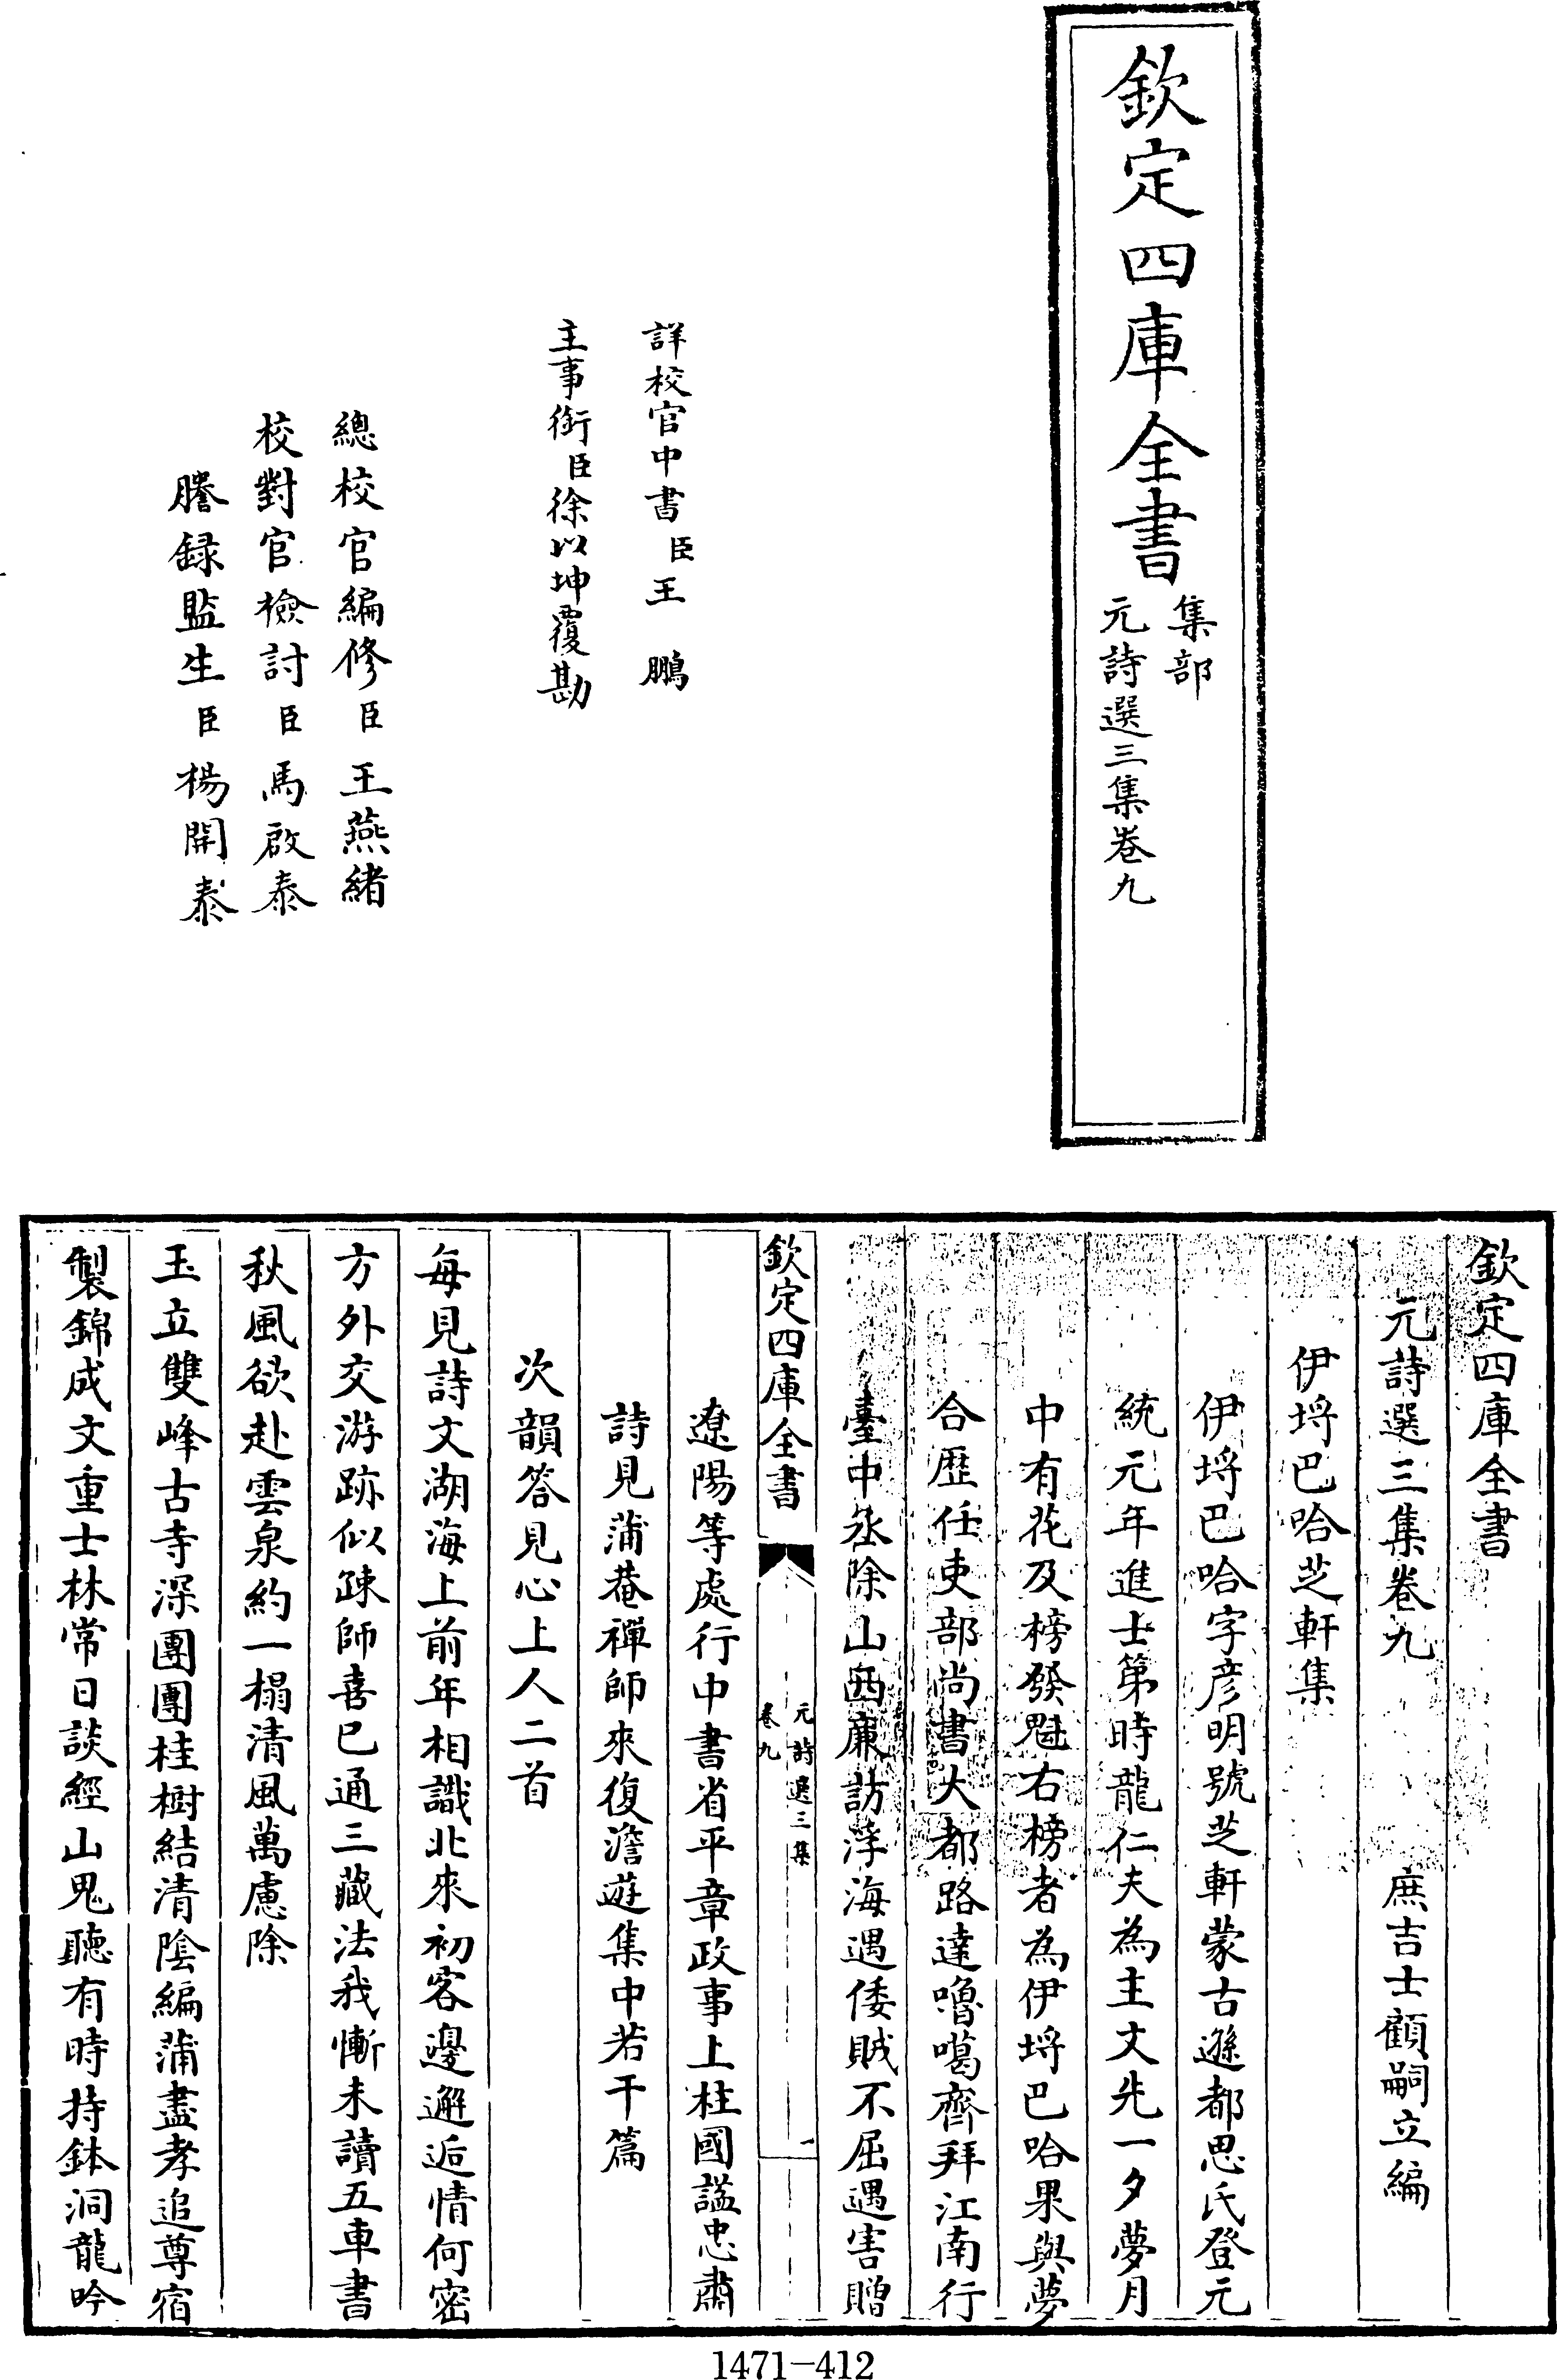 欽定四庫全書
集部
元詩選三集卷九
詳校官中書臣王鵬
主事銜臣徐以坤覆勘
總校官編修臣王燕緒
校對官檢討臣馬啟泰
謄録監生臣楊開泰
欽定四庫全書
元詩選三集卷九 庶吉士顧嗣立編
伊埒巴哈芝軒集
伊埒巴哈字彦明號芝軒蒙古遜都思氏登元
統元年進士第時龍仁夫為主文先一夕夢月
中有花及榜發魁右榜者為伊埒巴哈果與夢
合歴任吏部尚書大都路達嚕噶齊拜江南行
臺中丞除山西廉訪浮海遇倭賊不屈遇害贈
欽定四庫全書
元詩選三集
卷九
一
遼陽等處行中書省平章政事上柱國諡忠肅
詩見蒲菴禪師來復澹遊集中若干篇
次韻答見心上人二首
每見詩文湖海上前年相識北來初客邊邂逅情何密
方外交游跡似疎師喜已通三藏法我慚未讀五車書
秋風欲赴雲泉約一榻清風萬慮除
玉立雙峰古寺深團團桂樹結清陰編蒲盡孝追尊宿
製錦成文重士林常日談經山鬼聽有時持鉢洞龍吟
1471-412